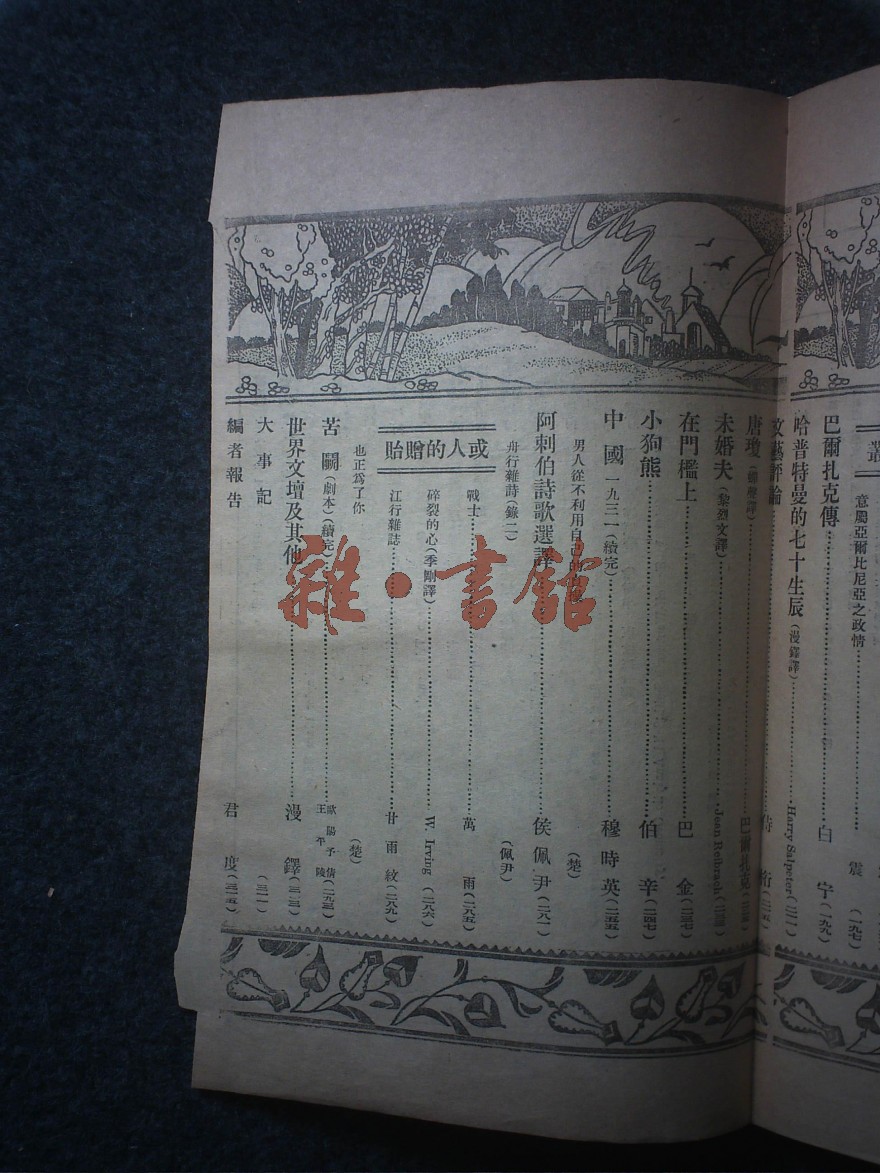 叢
意屬亞爾比尼亞之政情 震 (一九七)
巴爾扎克傳 白寧 (一九九)
哈普特曼的七十生辰 (漫鐸譯) Harry Salpeter
文藝評論 侍桁
唐瓊 巴爾扎克
未婚夫 (黎烈文譯) Jean Reibrach
在門檻上 巴金
小狗熊 伯辛 (二四七)
中國一九三一 (續完) 穆時英 (二五五)
男人從不利用自己的 (楚)
阿剌伯詩歌選譯 侯佩尹 (二六一)
舟行雜詩 (錄二) (佩尹)
或人的贈貽
戰士 萬雨 (二六五)
碎裂的心 (季剛譯) W. Irving (二六六)
江行雜誌 甘雨紋 (二八九)
也正爲了你 (楚)
苦鬬 (劇本) (續完) 歐陽予倩 王平陵 (二九三)
世界文壇及其他 漫鐸
大事記
編者報告 君度
雜·書館